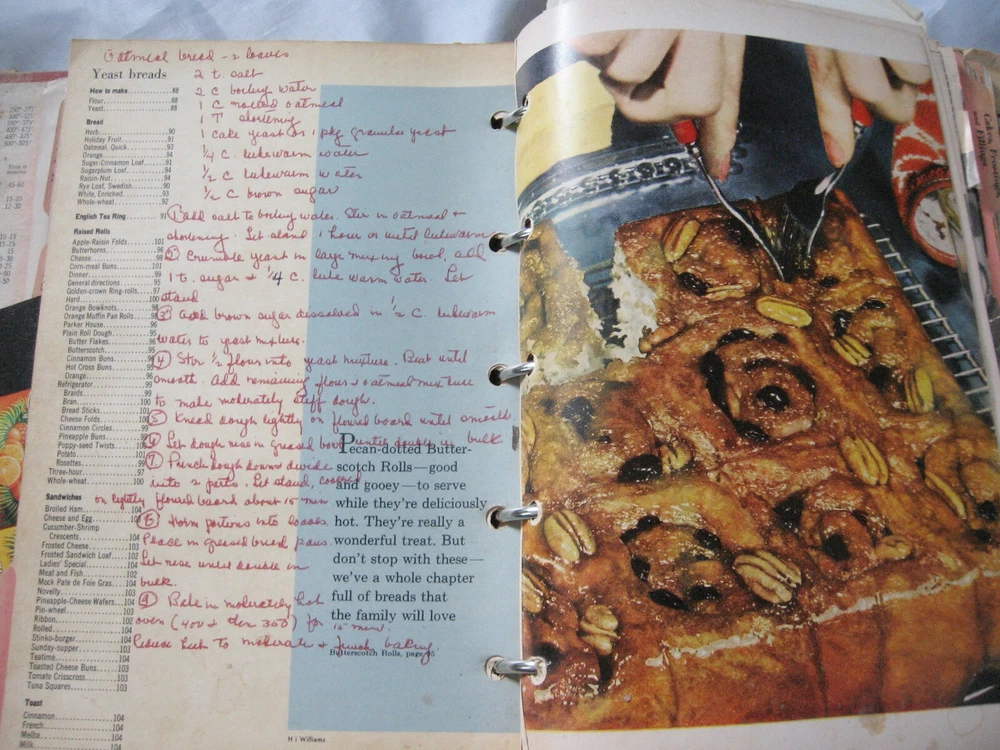 Oatmeal bread - 2 loaves
Yeast breads
How to make 88
Flour 88
Yeast 88
Bread
Herb 90
Holiday Fruit 91
Oatmeal, Quick 93
Orange 94
Sugar-Cinnamon Loaf 93
Sugarplum Loaf 94
Raisin-Nut 94
Rye Loaf, Swedish 90
White, Enriched 93
Whole-wheat 92
English Tea Ring 91
Raised Rolls
Apple-Raisin Folds 101
Butterhorns 96
Cheese 98
Corn-meal Buns 101
Dinner 99
General directions 95
Golden-crown Ring-rolls 97
Hard 100
Orange Bowknots 98
Orange Muffin Pan Rolls
Parker House 96
Plain Roll Dough 95
Butter Flakes 96
Butterscotch 95
Cinnamon Buns
Hot Cross Buns
Orange
Refrigerator 99
Braids 99
Bran 100
Bread Sticks 101
Cheese Folds 100
Cinnamon Circles 99
Pineapple Buns
Poppy-seed Twists
Potato
Rosettes 99
Three-hour 97
Whole-wheat 100
Sandwiches
Broiled Ham 104
Cheese and Egg
Cucumber-Shrimp
Crescents 104
Frosted Cheese 103
Frosted Sandwich Loaf 102
Ladies' Special 104
Meat and Fish 102
Mock Pate de Foie Gras 104
Novelty 103
Pineapple-Cheese Wafers 104
Pin-wheel 103
Ribbon 102
Rolled 104
Stinko-burger 104
Sunday-supper 103
Teatime 104
Toasted Cheese Buns 103
Tomato Crisscross 103
Tuna Squares 103
Toast
Cinnamon 104
French 104
Melba 104
Milk
2 t. salt
2 C boiling water
1 C rolled oatmeal
1 T shortening
1 Cake yeast or 1 pkg granular yeast
1/4 C. lukewarm water
1/2 C lukewarm water
1/2 C brown sugar
① Add salt to boiling water. Stir in oatmeal +
shortening. Let stand 1 hour or until lukewarm
② Crumble yeast in large mixing bowl, add
1 t. sugar + 1/4 C. luke warm water. Let
stand
③ add brown sugar dissolved in 1/2 C. lukewarm
water to yeast mixture.
④ Stir 1/2 flour into yeast mixture. Beat until
smooth. Add remaining flour + oatmeal mixture
to make moderately stiff dough.
⑤ Knead dough lightly on floured board until smooth
⑥ Let dough rise in greased bowl until double in bulk
⑦ Punch dough down divide
into 2 parts. Let stand, covered
on lightly floured board about 15 min
⑧ Form portions into loaves.
Place in greased bread pans.
Let rise until double in
bulk.
⑨ Bake in moderately hot
oven (400 + then 350) for 15 mins.
Reduce heat to moderate + finish baking
Pecan-dotted Butter-
scotch Rolls—good
and gooey—to serve
while they're deliciously
hot. They're really a
wonderful treat. But
don't stop with these—
we've a whole chapter
full of breads that
the family will love
Butterscotch Rolls, page 95
H i Williams